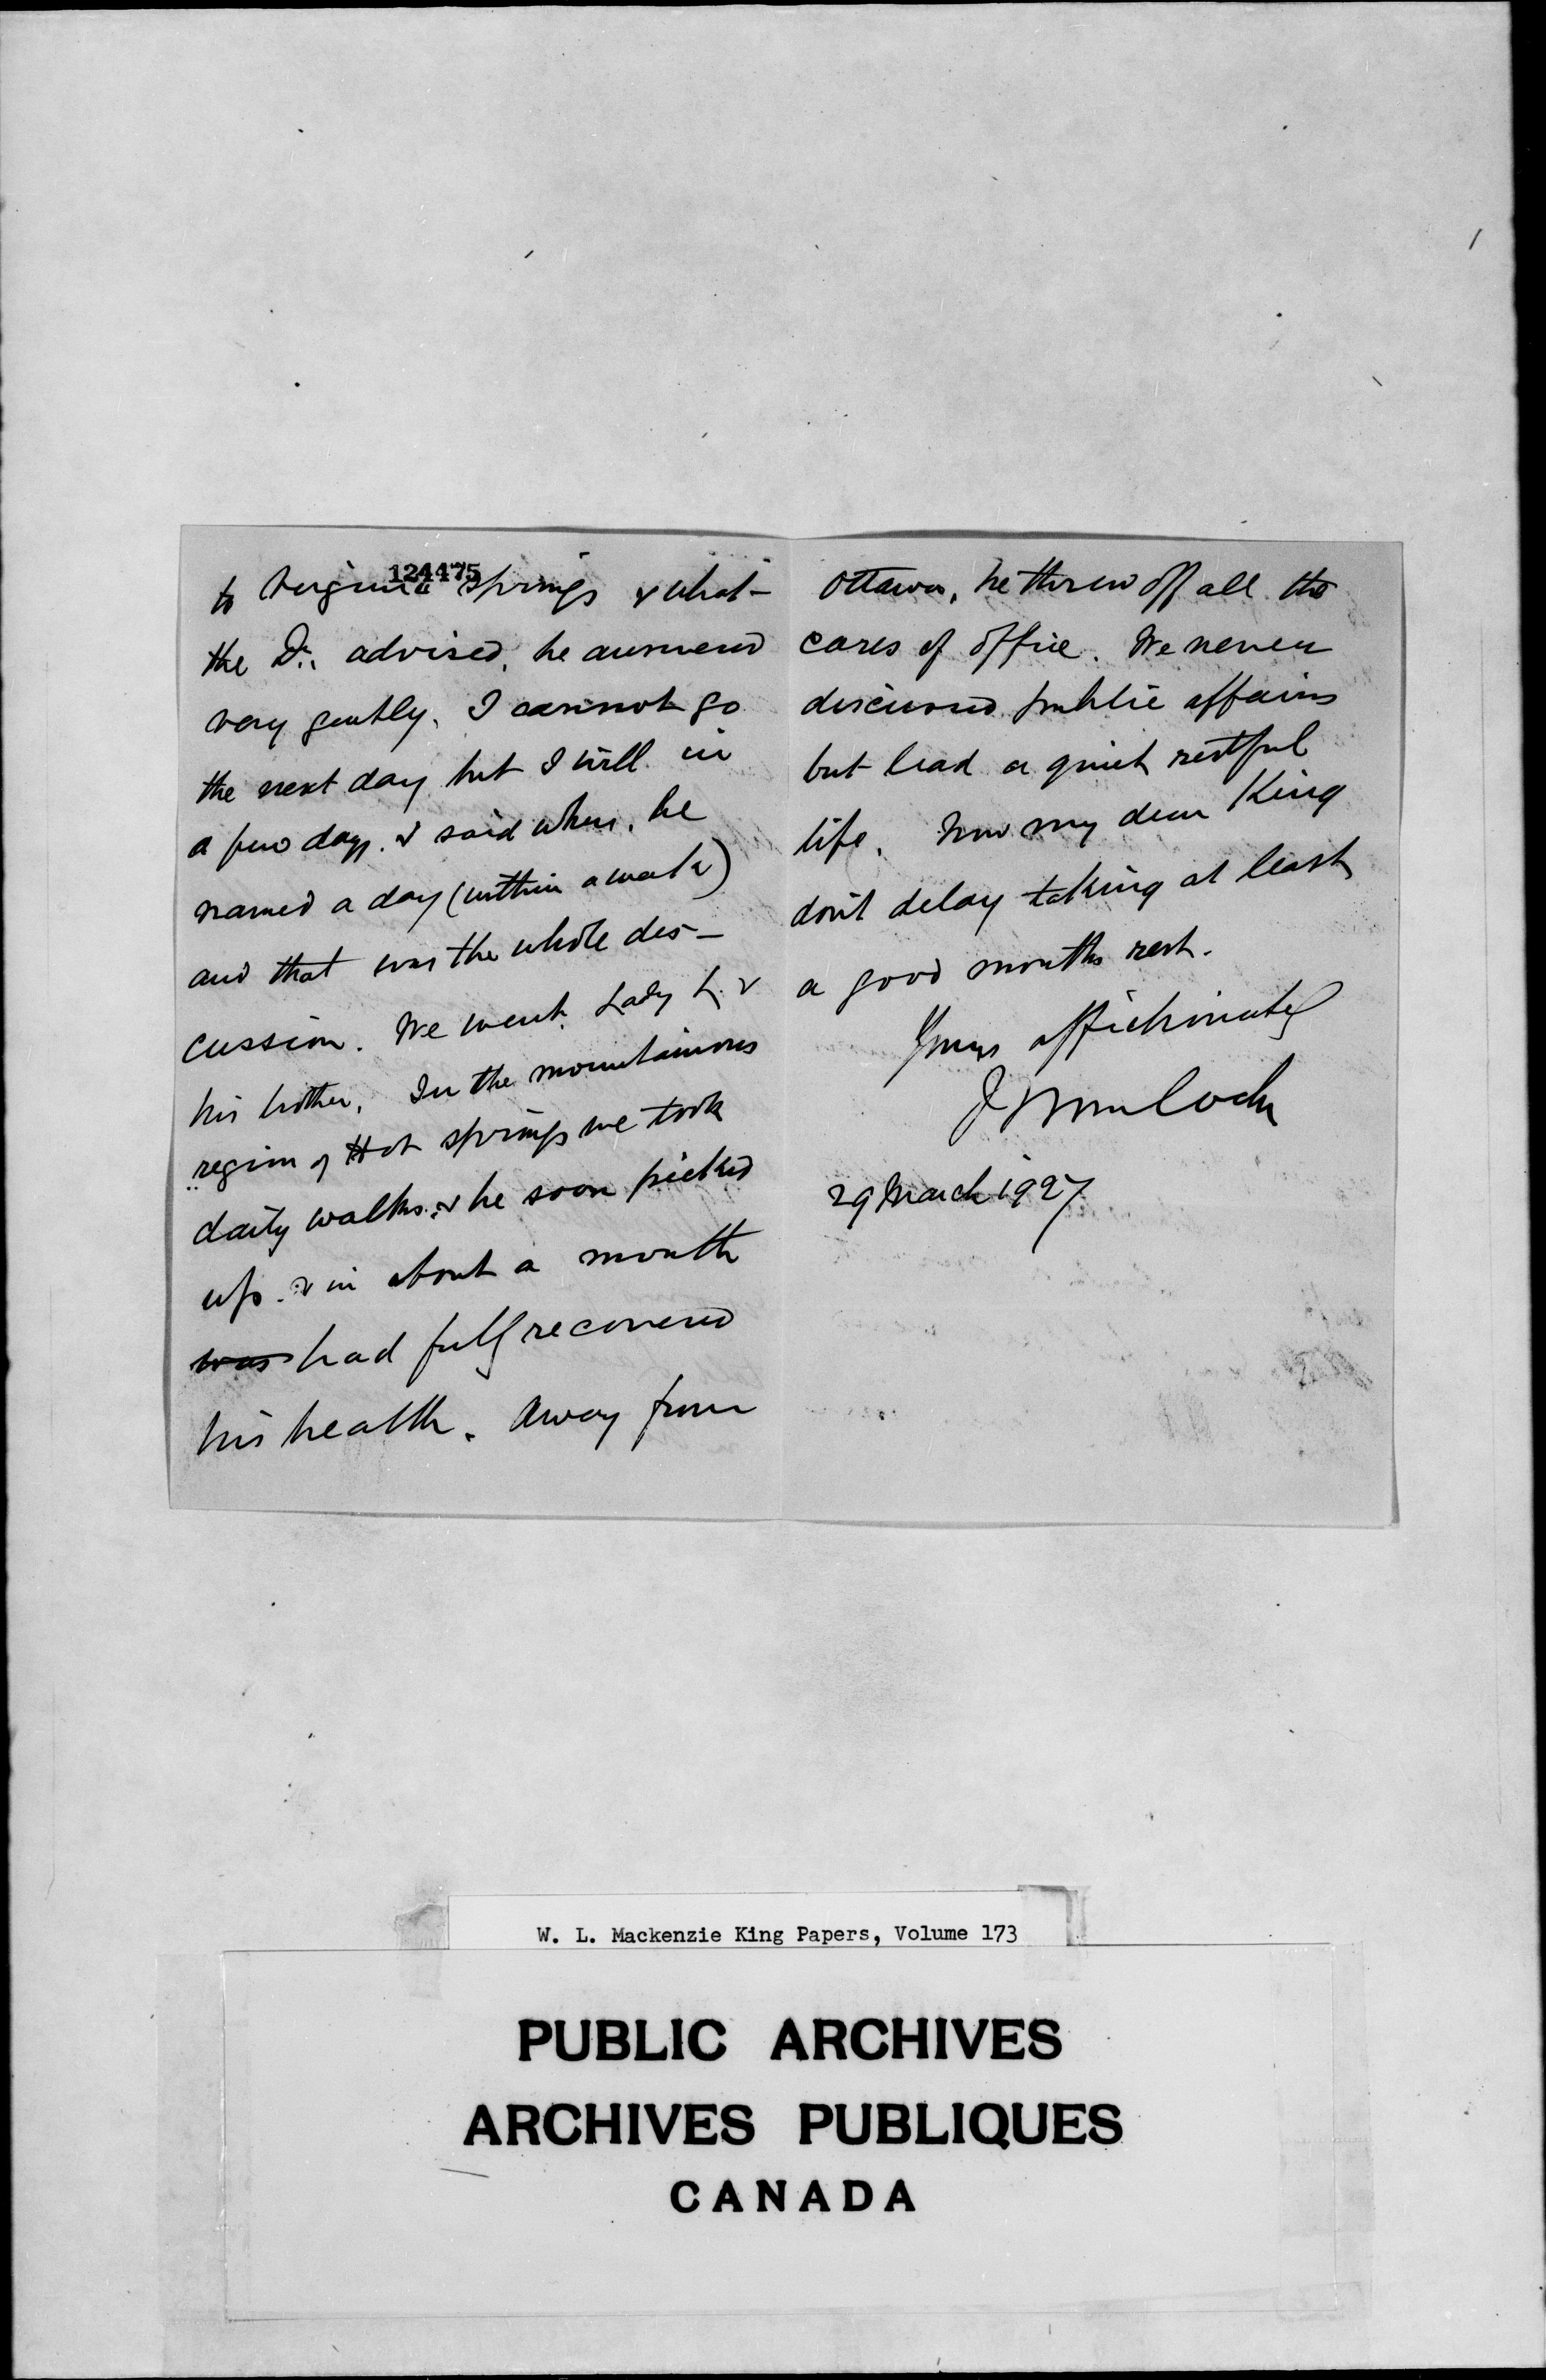 124475
to Virginia Springs & what
the Dr. advised, he answered
very gently, I cannot go
the next day but I will in
a few days. I said when, he
named a day (within a week)
and that was the whole dis-
cussion. We went, Lady L. &
his brother. In the mountainous
region of Hot Springs we took
daily walks & he soon picked
up. & in about a month
was had fully recovered
his health. Away from
Ottawa, he threw off all the
cares of office. We never
discussed public affairs
but lead a quiet restful
life. Now my dear King
don't delay taking at least
a good months rest.
Yours affectionately
Mulock
29 March 1927
W. L. Mackenzie King Papers, Volume 173
PUBLIC ARCHIVES
ARCHIVES PUBLIQUES
CANADA